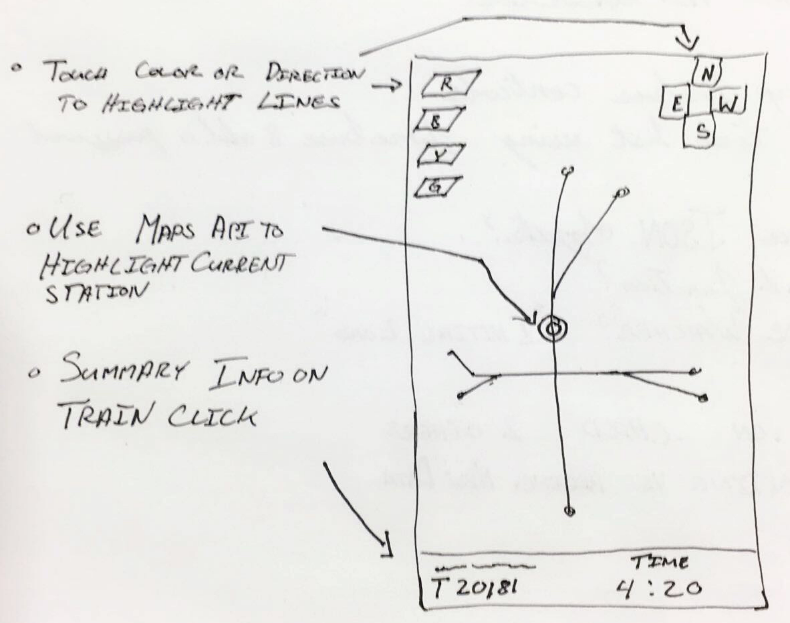 • TOUCH COLOR OR DIRECTION
TO HIGHLIGHT LINES
• USE MAPS API TO
HIGHLIGHT CURRENT
STATION
• SUMMARY INFO ON
TRAIN CLICK
R
B
Y
G
N
E W
S
TIME
T20181 4:20